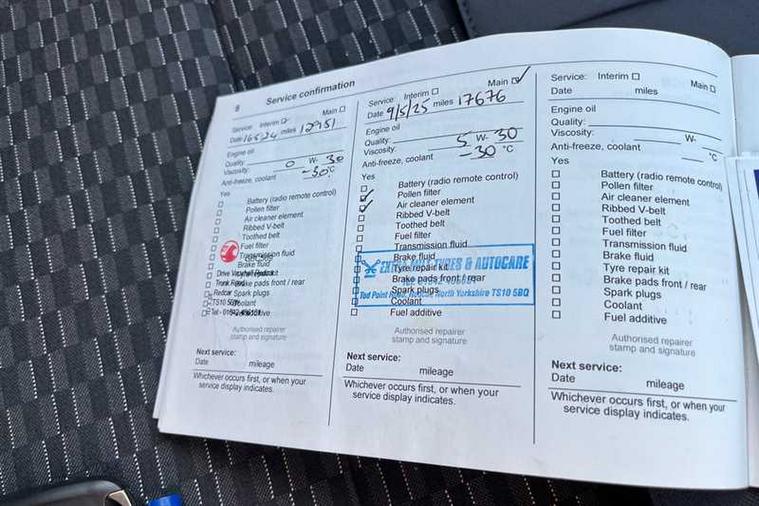 8 Service confirmation
Service: Interim Main
Date 16.5.24 miles 12951
Engine oil
Quality:
Viscosity: 0 W- 30
Anti-freeze, coolant -30°C
Yes
Battery (radio remote control)
Pollen filter
Air cleaner element
Ribbed V-belt
Toothed belt
Fuel filter
Transmission fluid
Brake fluid
Brake pads front / rear
Spark plugs
Coolant
Fuel additive
Drive Vauxhall Redcar
Trunk Road
Redcar
TS10 5BW
Tel - 01642
Authorised repairer
stamp and signature
Next service:
Date mileage
Whichever occurs first, or when your
service display indicates.
Service: Interim Main
Date 9/5/25 miles 17676
Engine oil
Quality:
Viscosity: 5 W- 30
Anti-freeze, coolant -30 °C
Yes
Battery (radio remote control)
Pollen filter
Air cleaner element
Ribbed V-belt
Toothed belt
Fuel filter
Transmission fluid
Brake fluid
Tyre repair kit
Brake pads front / rear
Spark plugs
Coolant
Fuel additive
EXTRA MILE TYRES & AUTOCARE
Tod Point Road, Redcar, North Yorkshire TS10 5BQ
Authorised repairer
stamp and signature
Next service:
Date mileage
Whichever occurs first, or when your
service display indicates.
Service: Interim Main
Date miles
Engine oil
Quality:
Viscosity: W-
Anti-freeze, coolant °C
Yes
Battery (radio remote control)
Pollen filter
Air cleaner element
Ribbed V-belt
Toothed belt
Fuel filter
Transmission fluid
Brake fluid
Tyre repair kit
Brake pads front / rear
Spark plugs
Coolant
Fuel additive
Authorised repairer
stamp and signature
Next service:
Date mileage
Whichever occurs first, or when your
service display indicates.